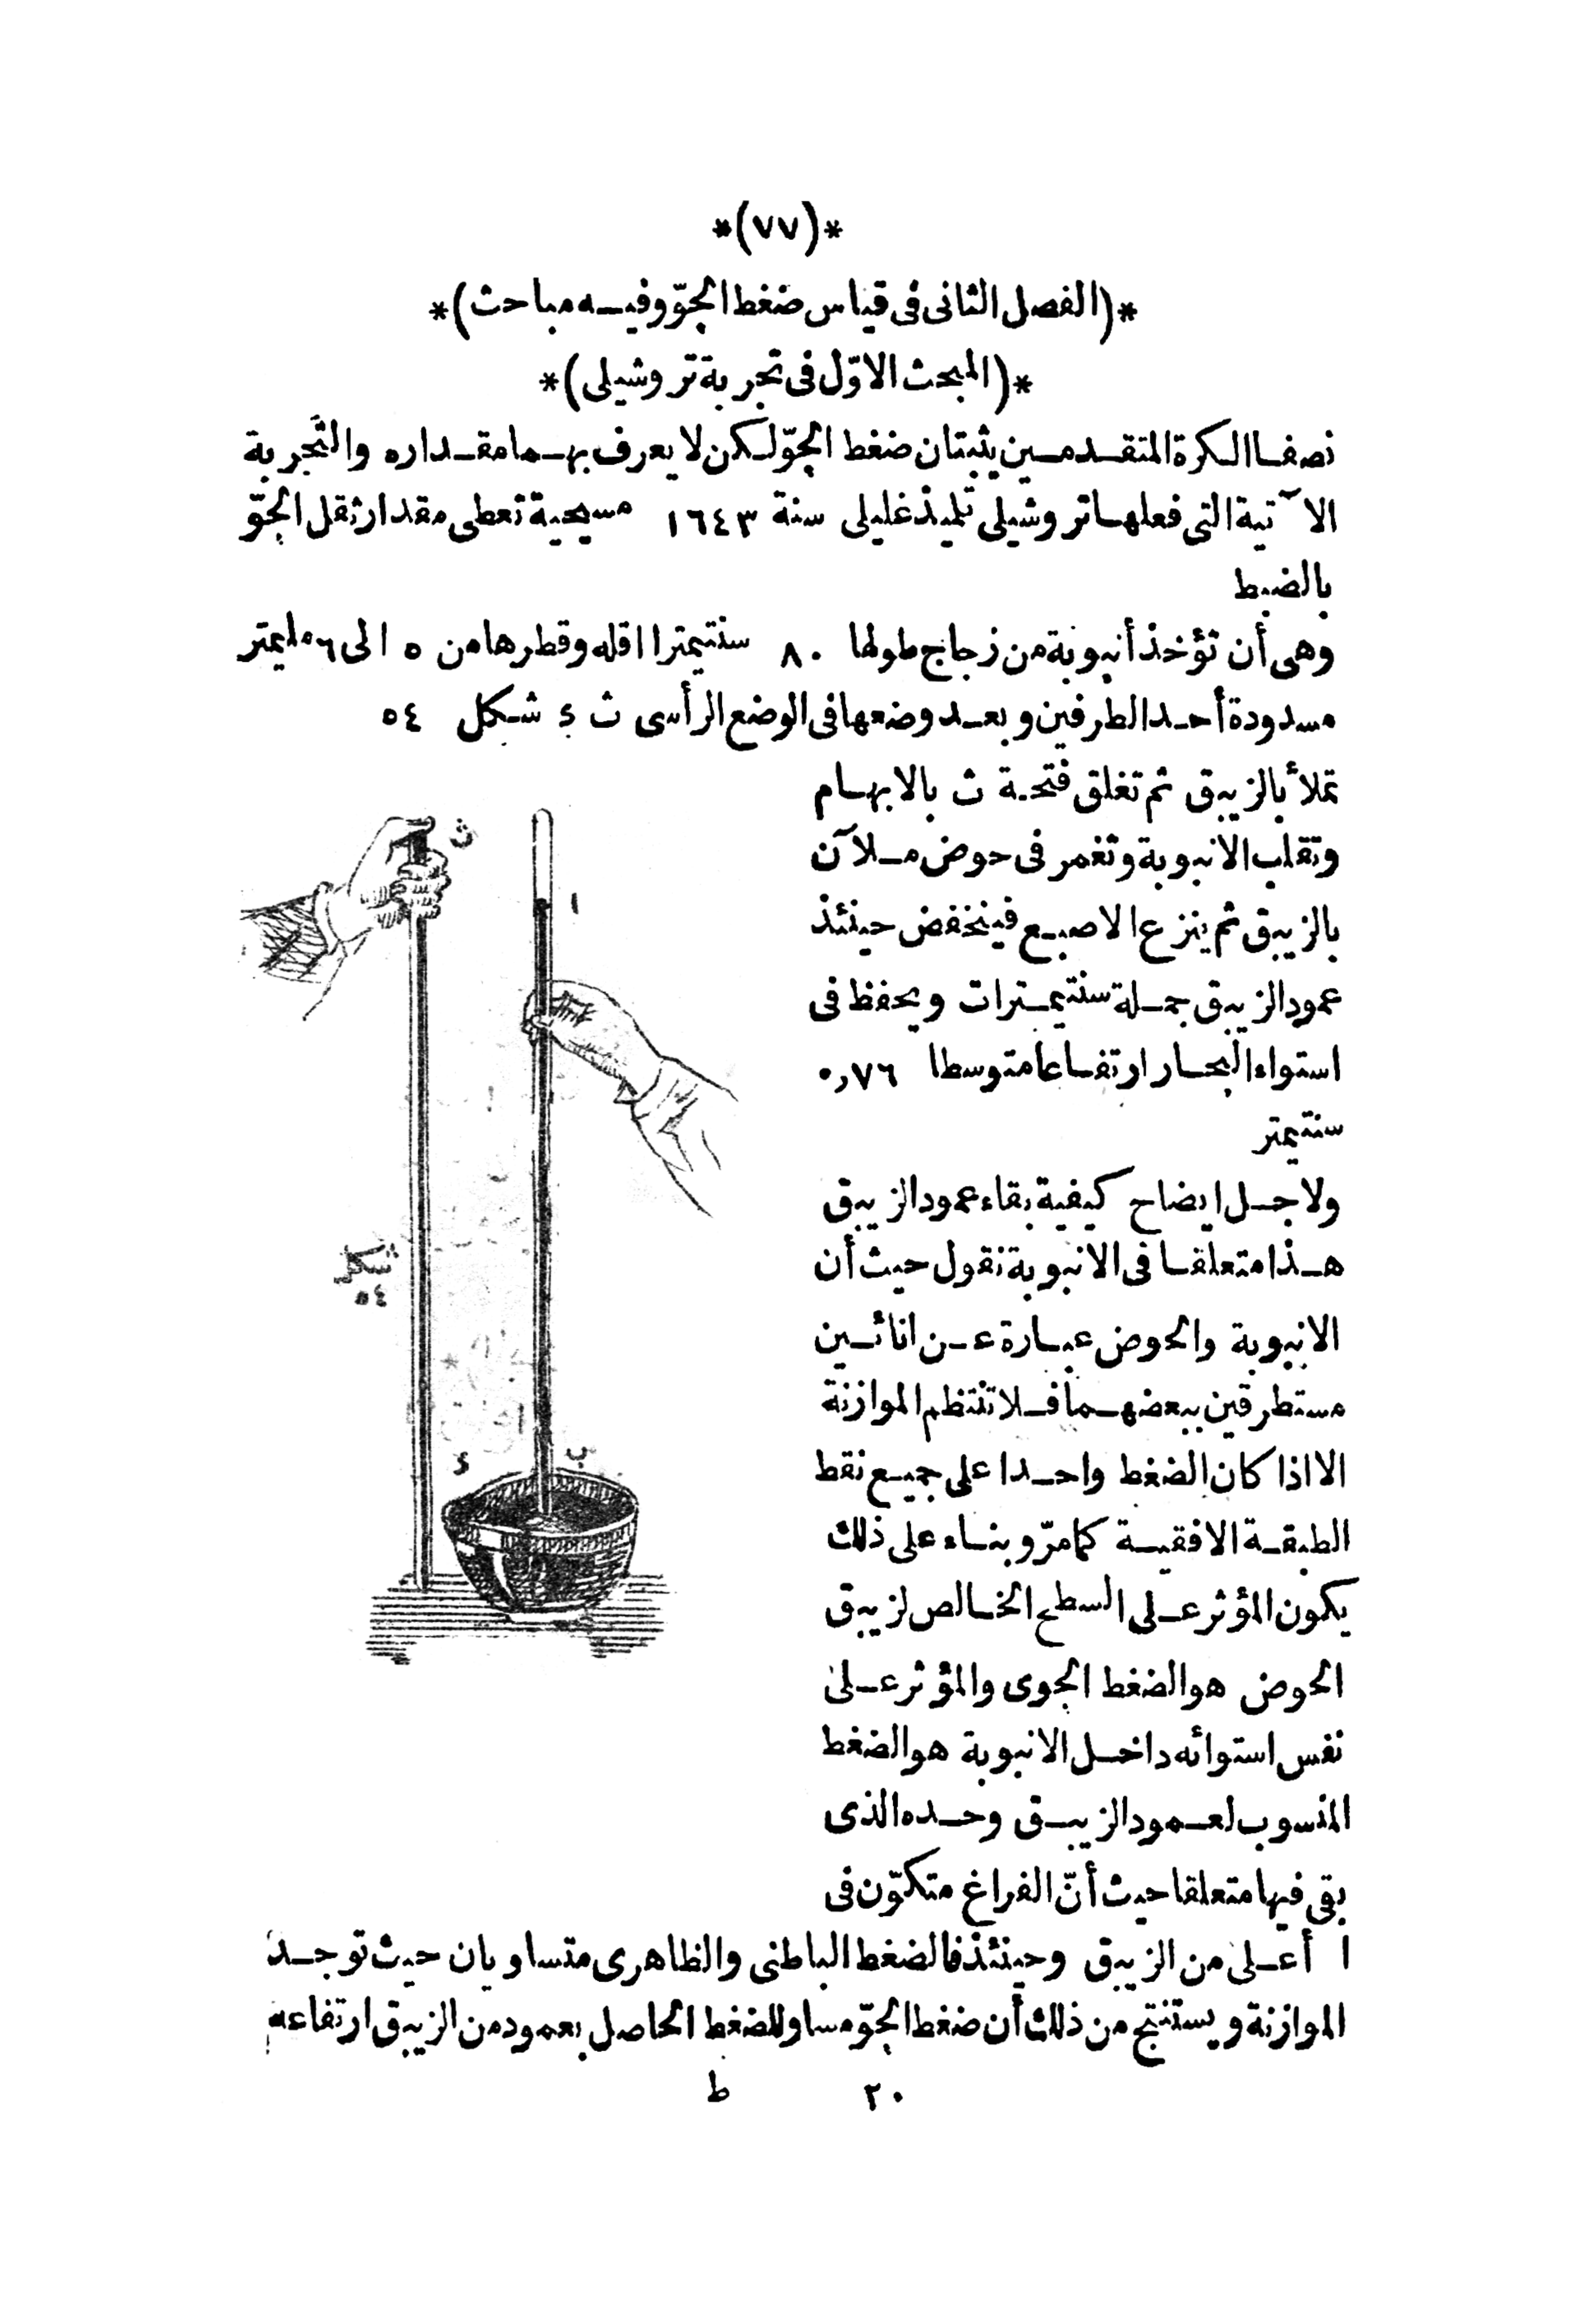 *(٧٧)*
*(الفصل الثانى فى قياس ضغط الجوّ وفيه مباحث)*
*(المبحث الاوّل فى تجربة تروشيلى)*
نصفا الكرة المتقدمين يثبتان ضغط الجوّ لكن لا يعرف بهما مقداره والتجربة
الآتية التى فعلها تروشيلى تلميذ غليلى سنة ١٦٤٣ مسيحية تعطى مقدار ثقل الجوّ
بالضبط
وهى أن تؤخذ أنبوبة من زجاج طولها ٨٠ سنتيمترا اقله وقطرها من ٥ الى ٦ مليمتر
مسدودة أحد الطرفين وبعد وضعها فى الوضع الرأسى ث ء شكل ٥٤
تملأ بالزيبق ثم تغلق فتحة ث بالابهام
وتقلب الانبوبة وتغمر فى حوض ملآن
بالزيبق ثم ينزع الاصبع فينخفض حينئذ
عمود الزيبق جملة سنتيمترات ويحفظ فى
استواء البحار ارتفاعا متوسطا ٠٫٧٦
سنتيمتر
ولاجل ايضاح كيفية بقاء عمود الزيبق
هذا متعلقا فى الانبوبة نقول حيث أن
الانبوبة والحوض عبارة عن انائين
مستطرقين ببعضهما فلا تنتظم الموازنة
الا اذا كان الضغط واحدا على جميع نقط
الطبقة الافقية كما مرّ وبناء على ذلك
يكون المؤثر على السطح الخالص لزيبق
الحوض هو الضغط الجوى والمؤثر على
نفس استوائه داخل الانبوبة هو الضغط
المنسوب لعمود الزيبق وحده الذى
بقى فيها متعلقا حيث أنّ الفراغ متكوّن فى
ا أعلى من الزيبق وحينئذ فالضغط الباطنى والظاهرى متساويان حيث توجد
الموازنة ويستنتج من ذلك أن ضغط الجوّ مساو للضغط الحاصل بعمود من الزيبق ارتفاعه
٢٠ ط
ث
ا
شكل
٥٤
ء
ب